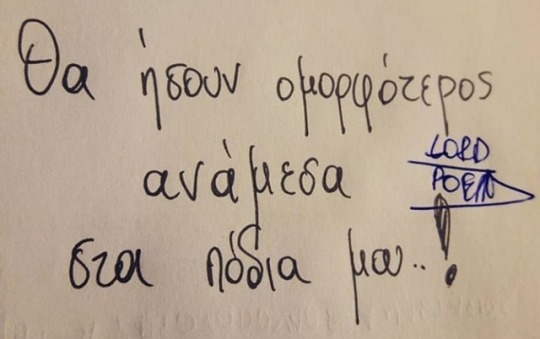 Θα ήσουν ομορφότερος
ανάμεσα
LORD
POEM
στα πόδια μου..!